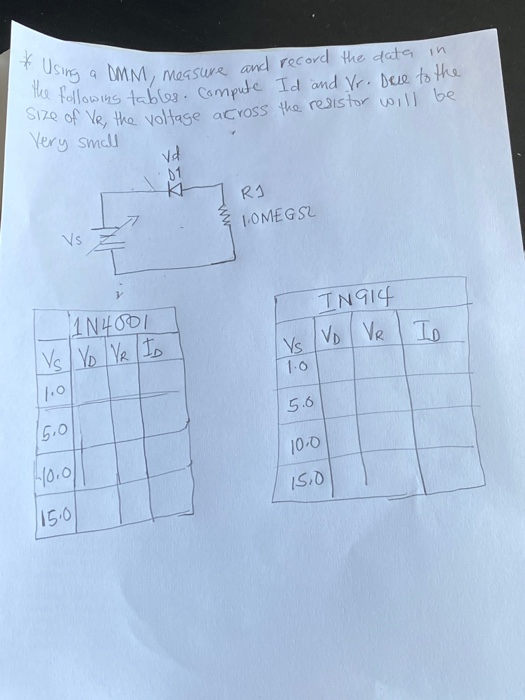 * Using a DMM, measure and record the data in
the following tables. Compute Id and Vr. Due to the
size of VR, the voltage across the resistor will be
Very small
Vd
D1
R1
1.0MEGΩ
Vs
1N4001
Vs VD VR ID
1.0
5.0
10.0
15.0
IN914
Vs VD VR ID
1.0
5.0
10.0
15.0